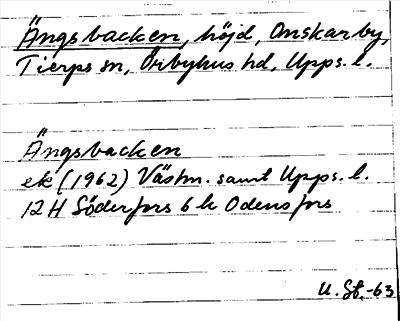 Ängsbacken, höjd, Onskarby,
Tierps sn, Örbyhus hd, Upps. l.
Ängsbacken
ek (1962) Västm. samt Upps. l.
12 H Söderfors 6 h Odensfors
U. St. -63